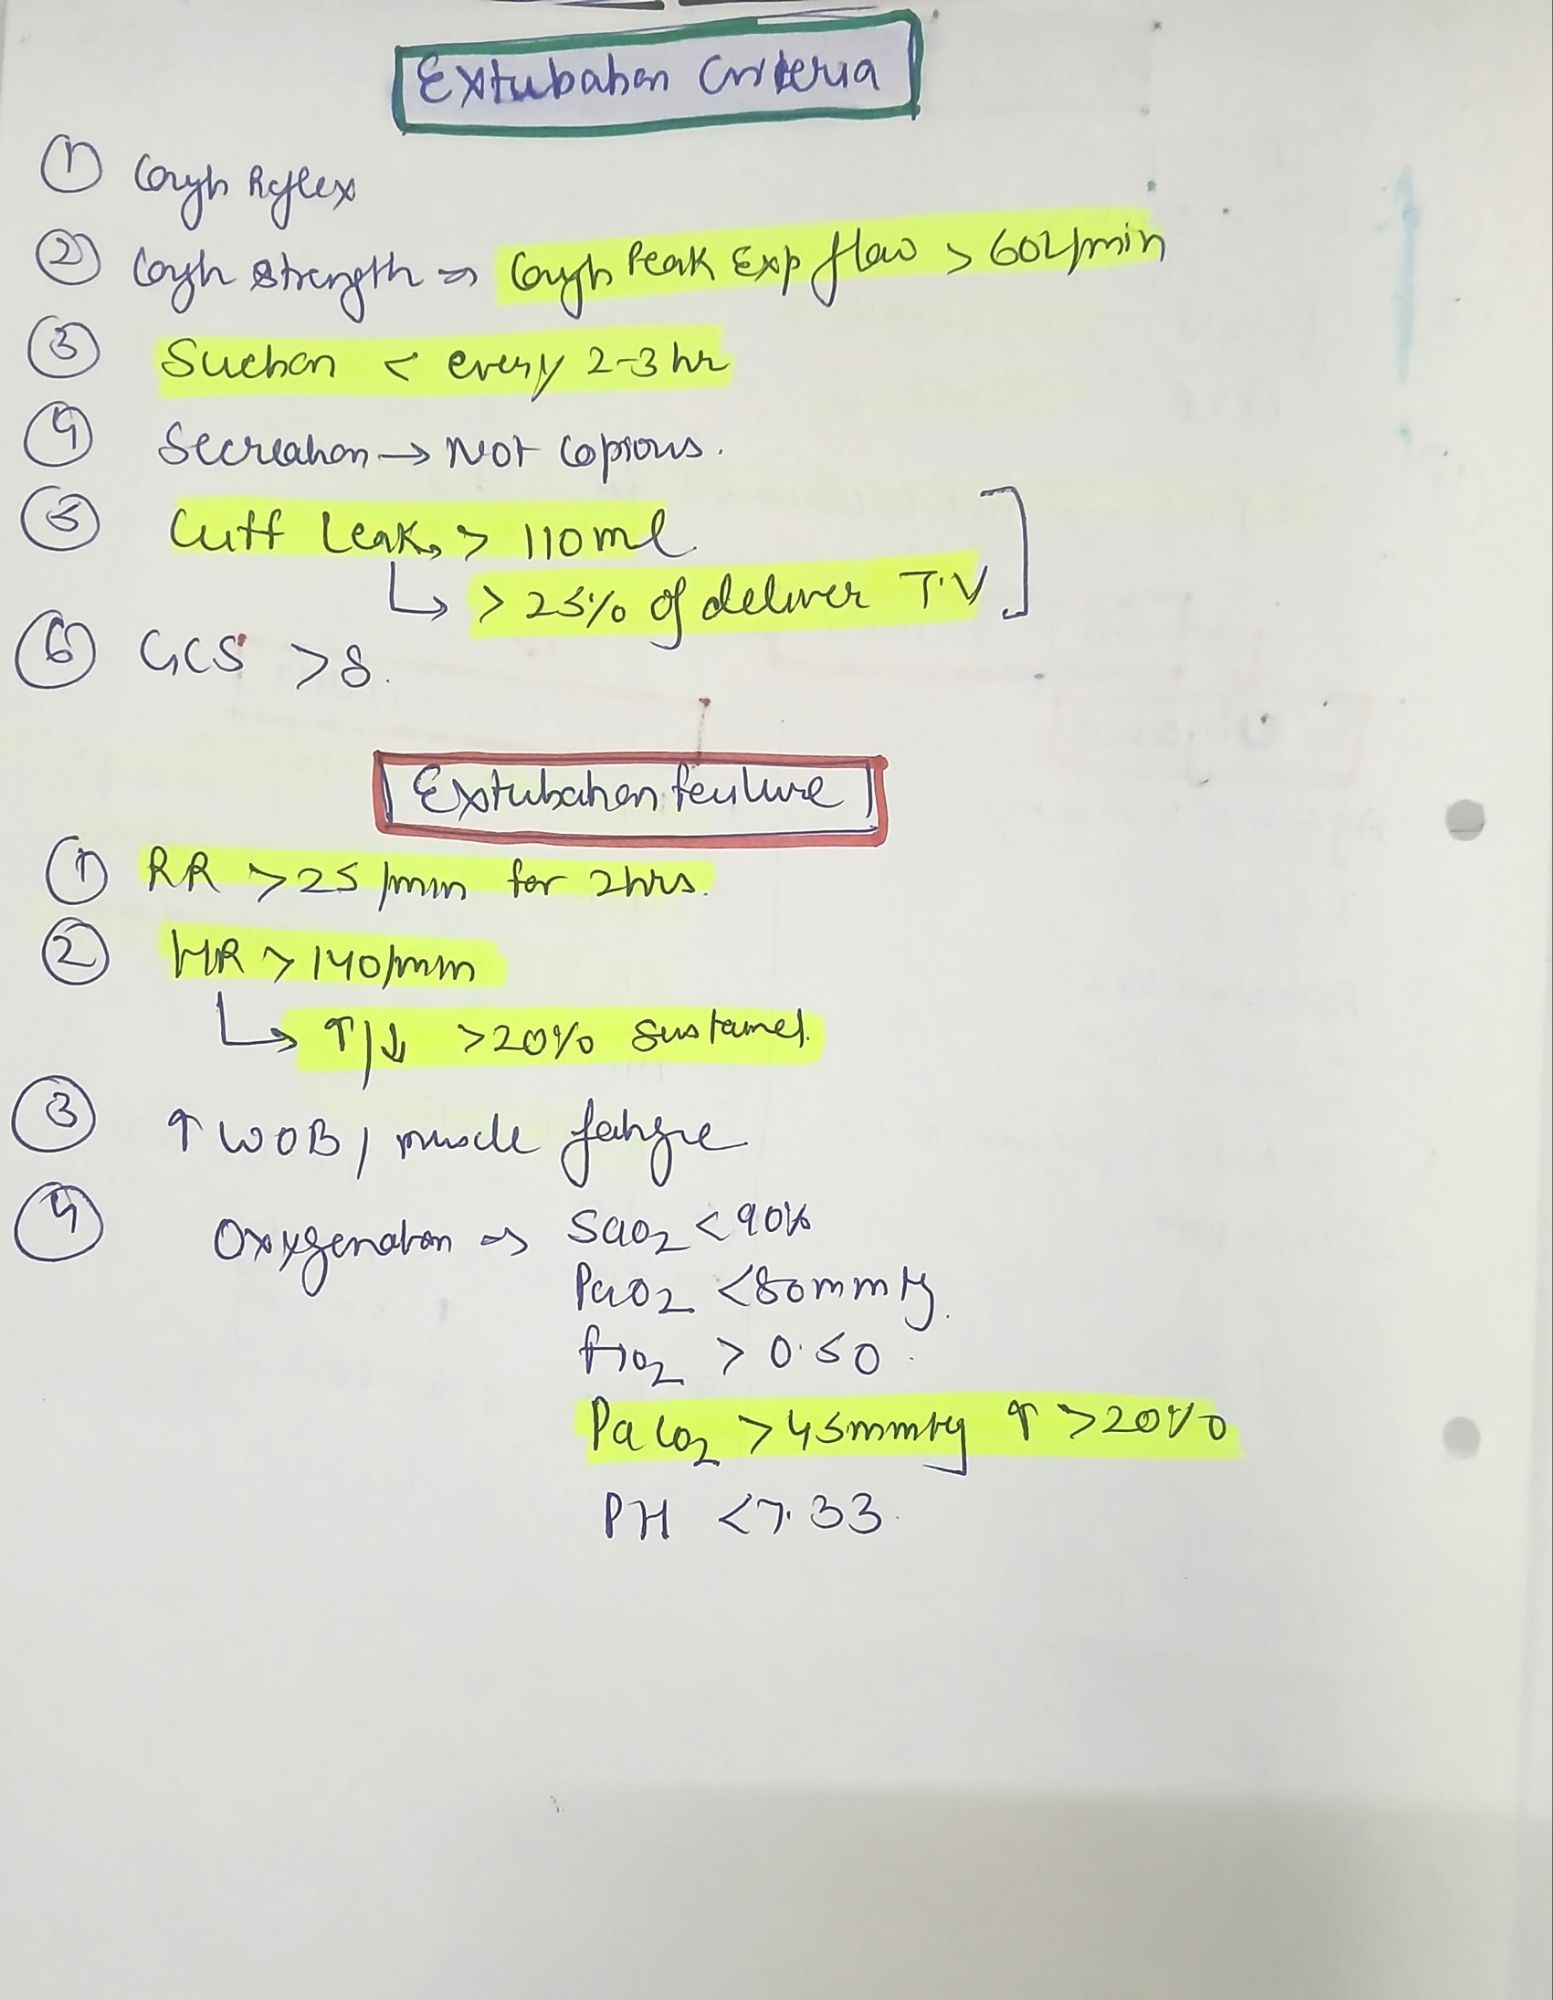 Extubation Criteria
① Cough Reflex
② Cough strength ⇒ Cough Peak Exp flow > 60L/min
③ Suction < every 2-3 hr
④ Secreation → Not Copious.
⑤ Cuff Leak > 110 ml
↳ > 25% of deliver T.V
⑥ GCS > 8.
Extubation failure
① RR > 25 /min for 2hrs.
② HR > 140/min
↳ ↑/↓ >20% sustained.
③ ↑ WOB / muscle fatigue
④ Oxygenation ⇒ SaO2 < 90%
PaO2 < 80mmHg.
fiO2 > 0.50.
PaCO2 > 45mmHg ↑ >20%
PH < 7.33.